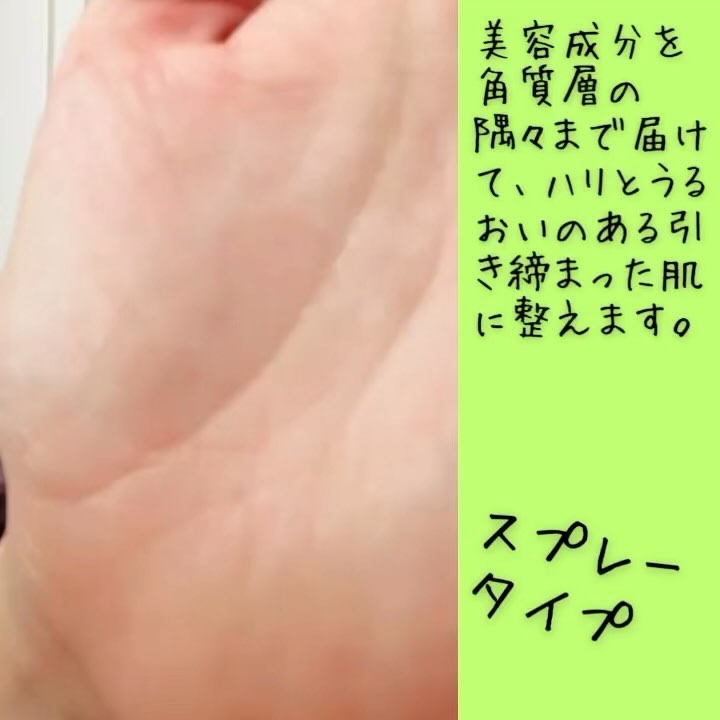 美容成分を
角質層の
隅々まで届け
て、ハリとうる
おいのある引
き締まった肌
に整えます。
スプレー
タイプ